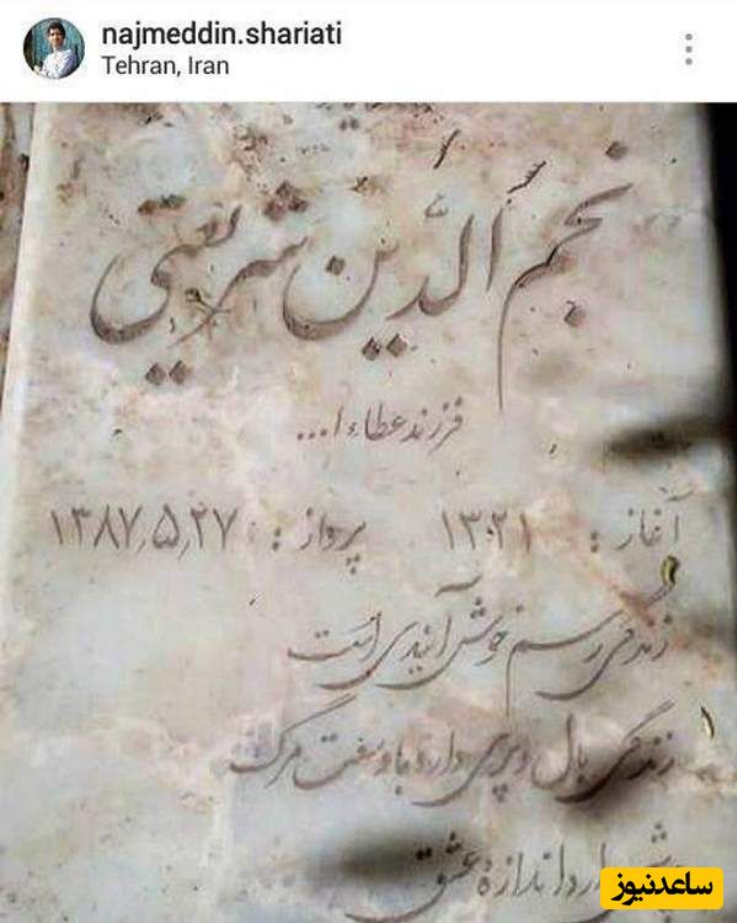 najmeddin.shariati
Tehran, Iran
نجم اُلدّین شریعتی
فرزند عطاء ا...
آغاز: ۱۳۲۱ پرواز: ۱۳۸۷٫۵٫۲۷
زندگی رسم خوش آیندی است
زندگی بال و پری دارد با وسعت مرگ
دارد اندازهٔ عشق
ساعدنیوز